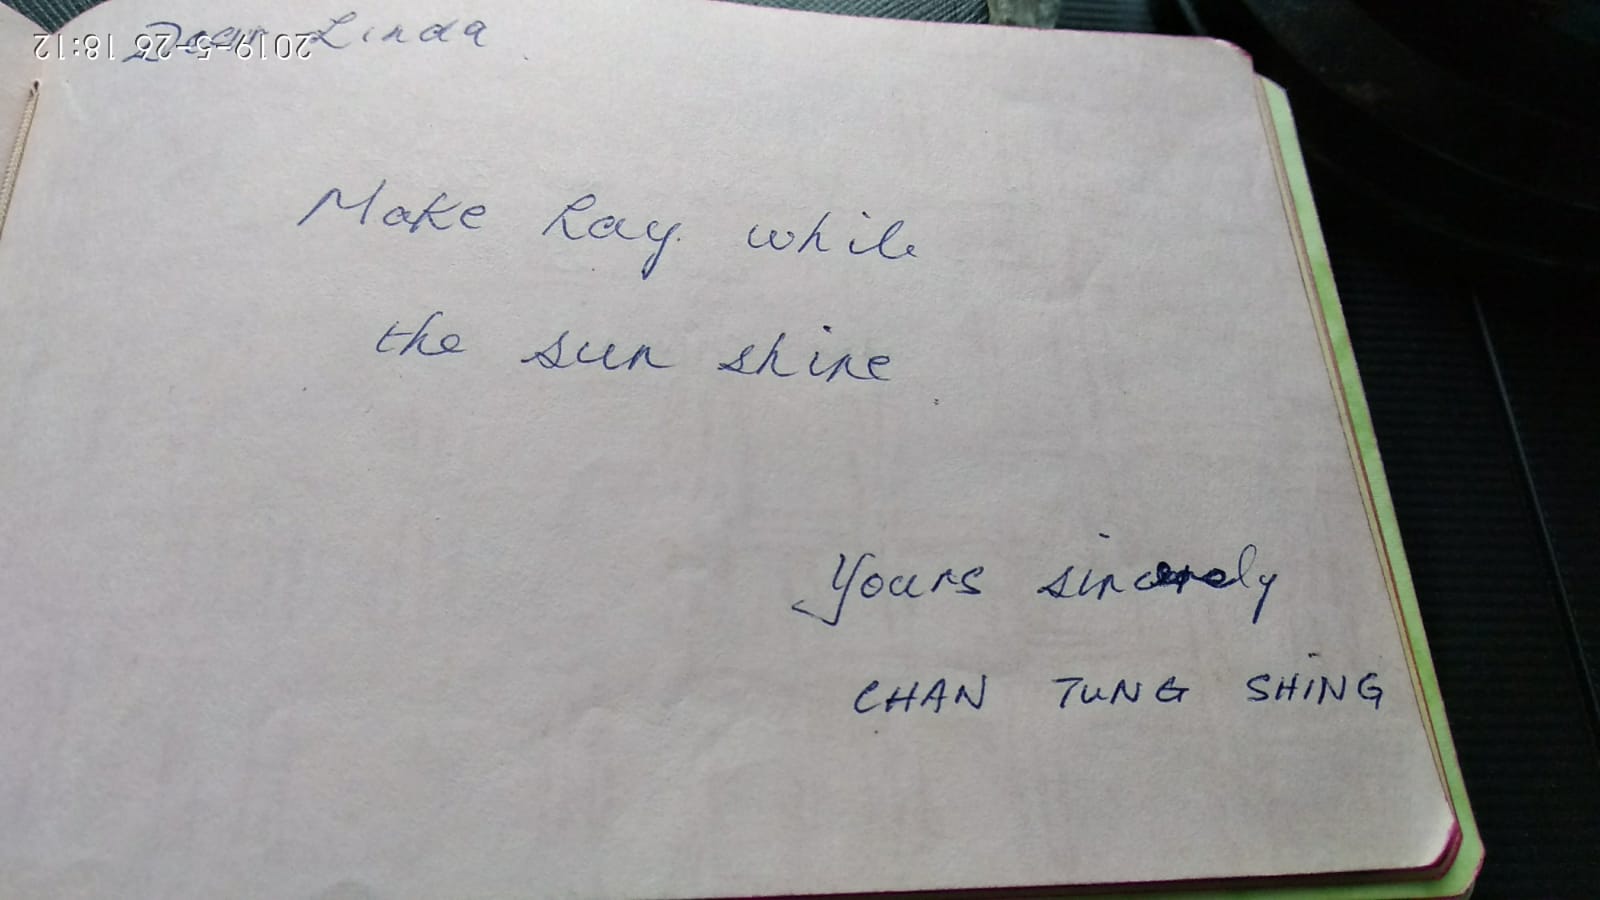 Dear Linda
2019-5-26 18:12
Make hay. while
the sun shine
Yours sincerely
CHAN TUNG SHING